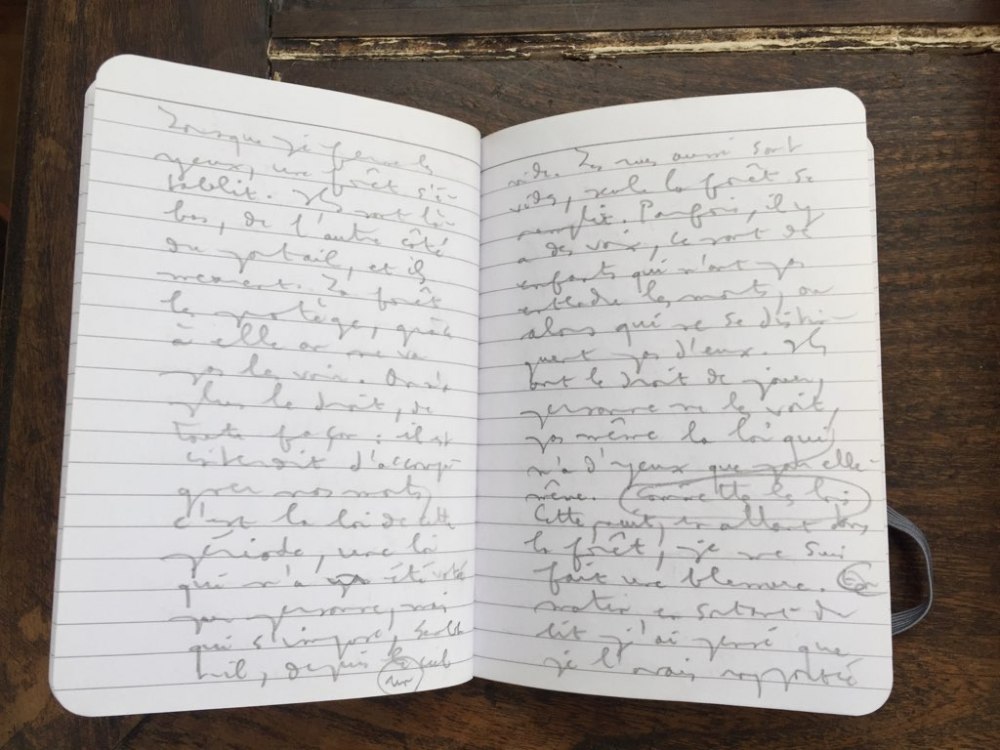 Lorsque je ferme les
yeux, une forêt s'é-
tablit. Ils sont là-
bas, de l'autre côté
du portail, et ils
meurent. La forêt
les protège, grâce
à elle on ne va
pas les voir. On n'a
plus le droit, de
toute façon : il est
interdit d'accompa-
gner nos morts
c'est la loi de cette
période, une loi
qui n'a été votée
par personne, mais
qui s'impose, semble
t-il, depuis
vide. Les rues aussi sont
vides, seule la forêt se
remplit. Parfois, il y
a des voix, ce sont des
enfants qui n'ont pas
entendu les morts, ou
alors qui ne se distin-
guent pas d'eux. Ils
ont le droit de jouer,
personne ne les voit,
pas même la loi qui
n'a d'yeux que pour elle-
même. Comme toutes les lois
Cette nuit, en allant dans
la forêt, je me suis
fait une blessure. Ce
matin en sortant du
lit j'ai pensé que
je l'avais rapportée